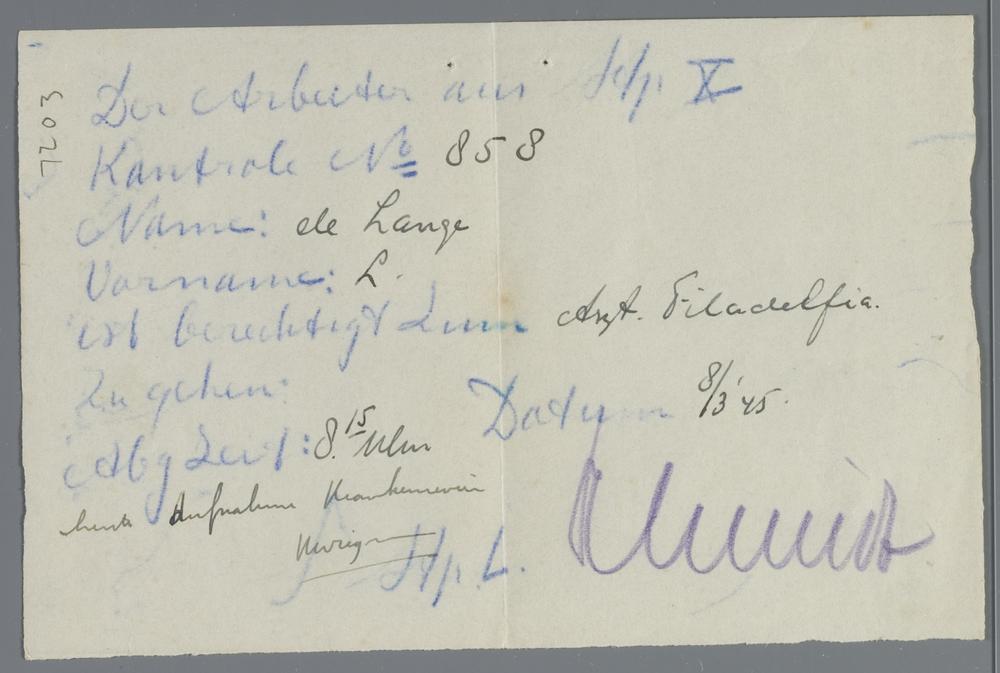 7203
Der Arbeiter aus Stp. X
Kantrole No 858
Name: de Lange
Vorname: L.
ist berechtigt zum Arzt. Filadelfia.
Zu gehen:
Datum 8/3 '45.
Abg Zeit: 8.15 Uhr
heute Aufnahme
Stp. L.